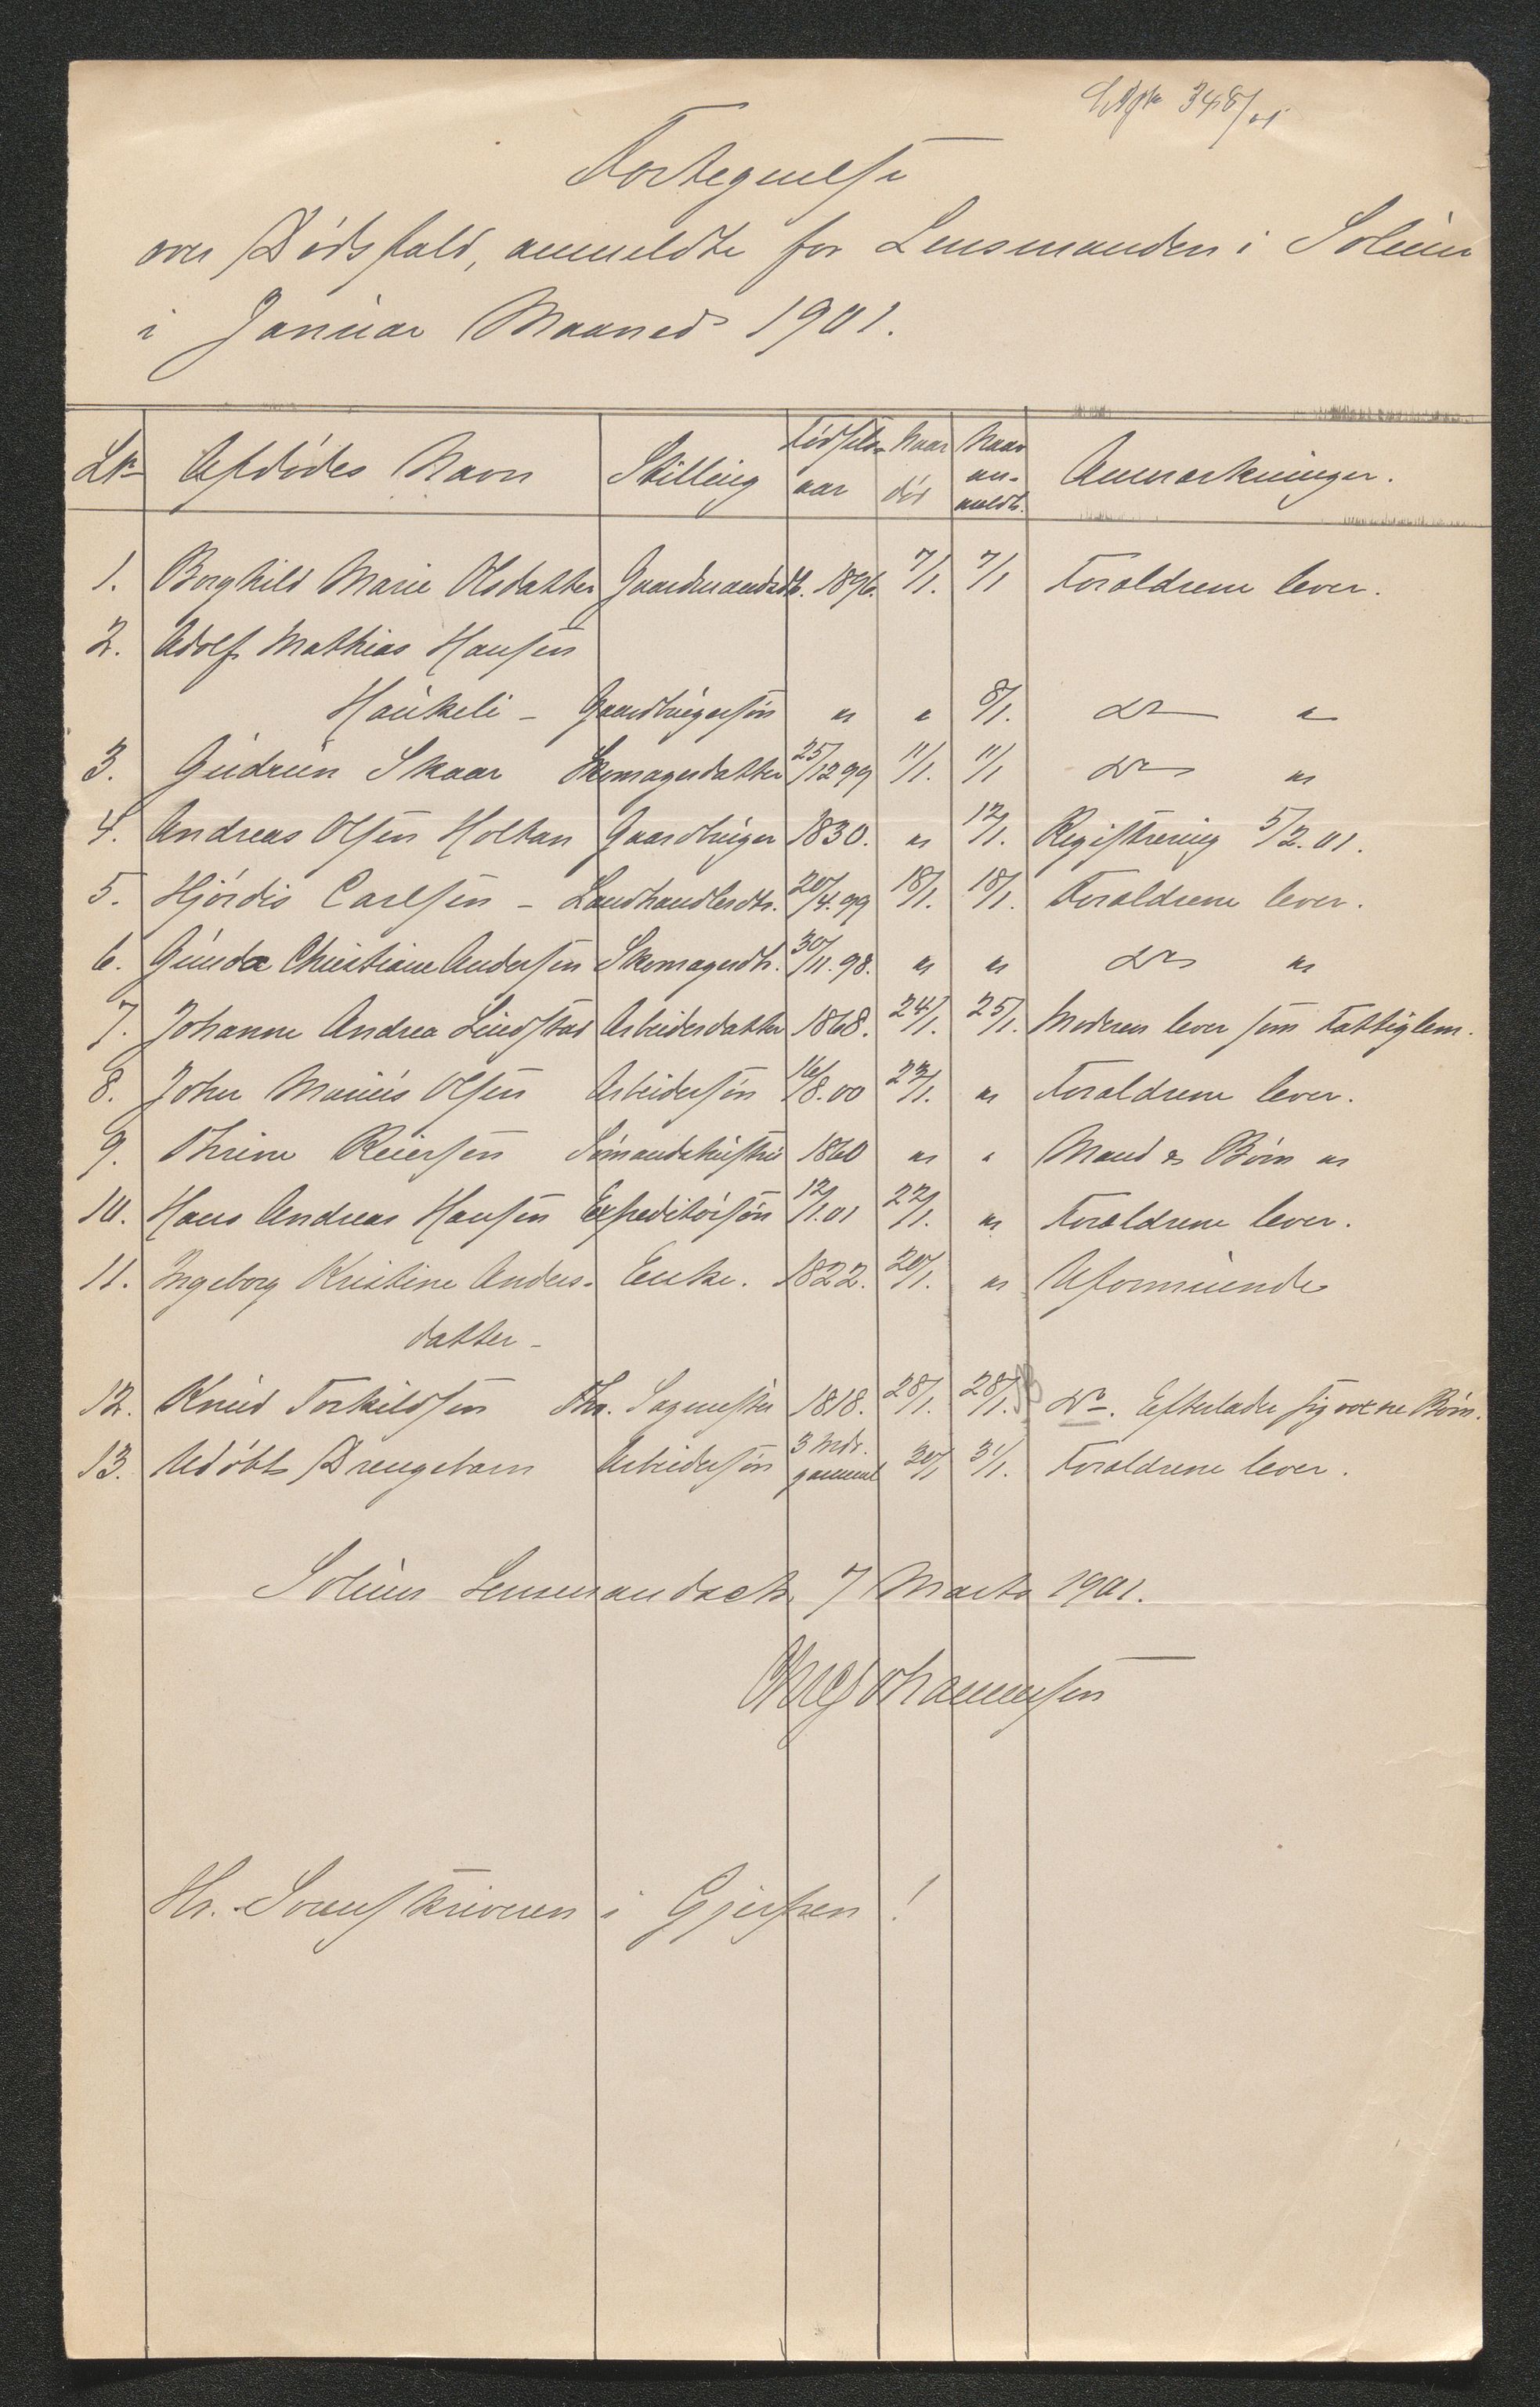 348/01
Fortegnelse
over Dødsfald, anmeldte for Lensmanden i Solum
i Januar Maaned 1901.
Lno Afdødes Navn Stilling Fødsels-aar Naar død Naar an-meldt. Anmærkninger.
1. Borghild Marie Olsdatter Gaardmandsdt. 1896. 7/1. 7/1 Forældrene lever.
2. Adolf Mathias Hansen
Haukeli - Gaardbrugersøn " " 8/1. do "
3. Gudrun Skaar Skomagerdatter 25/12 99 11/1. 11/1 do "
4. Andreas Olsen Holtan Gaardbruger 1830. " 12/1. Registrering 5/2.01.
5. Hjørdis Carlsen - Landhandlerdtr. 20/4.99 18/1. 18/1. Forældrene lever.
6. Gunda Christiane Andersen Skomagerdtr. 30/11.98. " " do "
7. Johanne Andrea Lindstad Arbeiderdatter 1868. 24/1. 25/1. Moderen lever som Fattiglem.
8. John Marius Olsen Arbeidersøn 16/8.00 23/1. " Forældrene lever.
9. Thrine Reiersen Sømandshustru 1860 " " Mand & Børn "
10. Hans Andreas Hansen Expeditørsøn 12/1.01 22/1. " Forældrene lever.
11. Ingeborg Kristine Anders- Enke. 1822. 20/1. " Uformuende
datter -
12. Knud Torkildsen Fhv. Sagmester 1818. 28/1. 28/1. Do. Efterlader sig voxne Børn.
13. Udøbt Drengebarn Arbeidersøn 3 Mdr. gammel 30/1 31/1. Forældrene lever.
Solum Lensmandsct. 7 Marts 1901.
Johannessen
Hr. Sorenskriveren i Gjerpen!